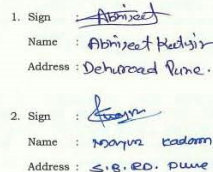 1. Sign : Abhijeet
Name : Abhijeet
Address : Dehuroad Pune.
2. Sign :
Name : Mayur Kadam
Address : S.B. RD. Pune